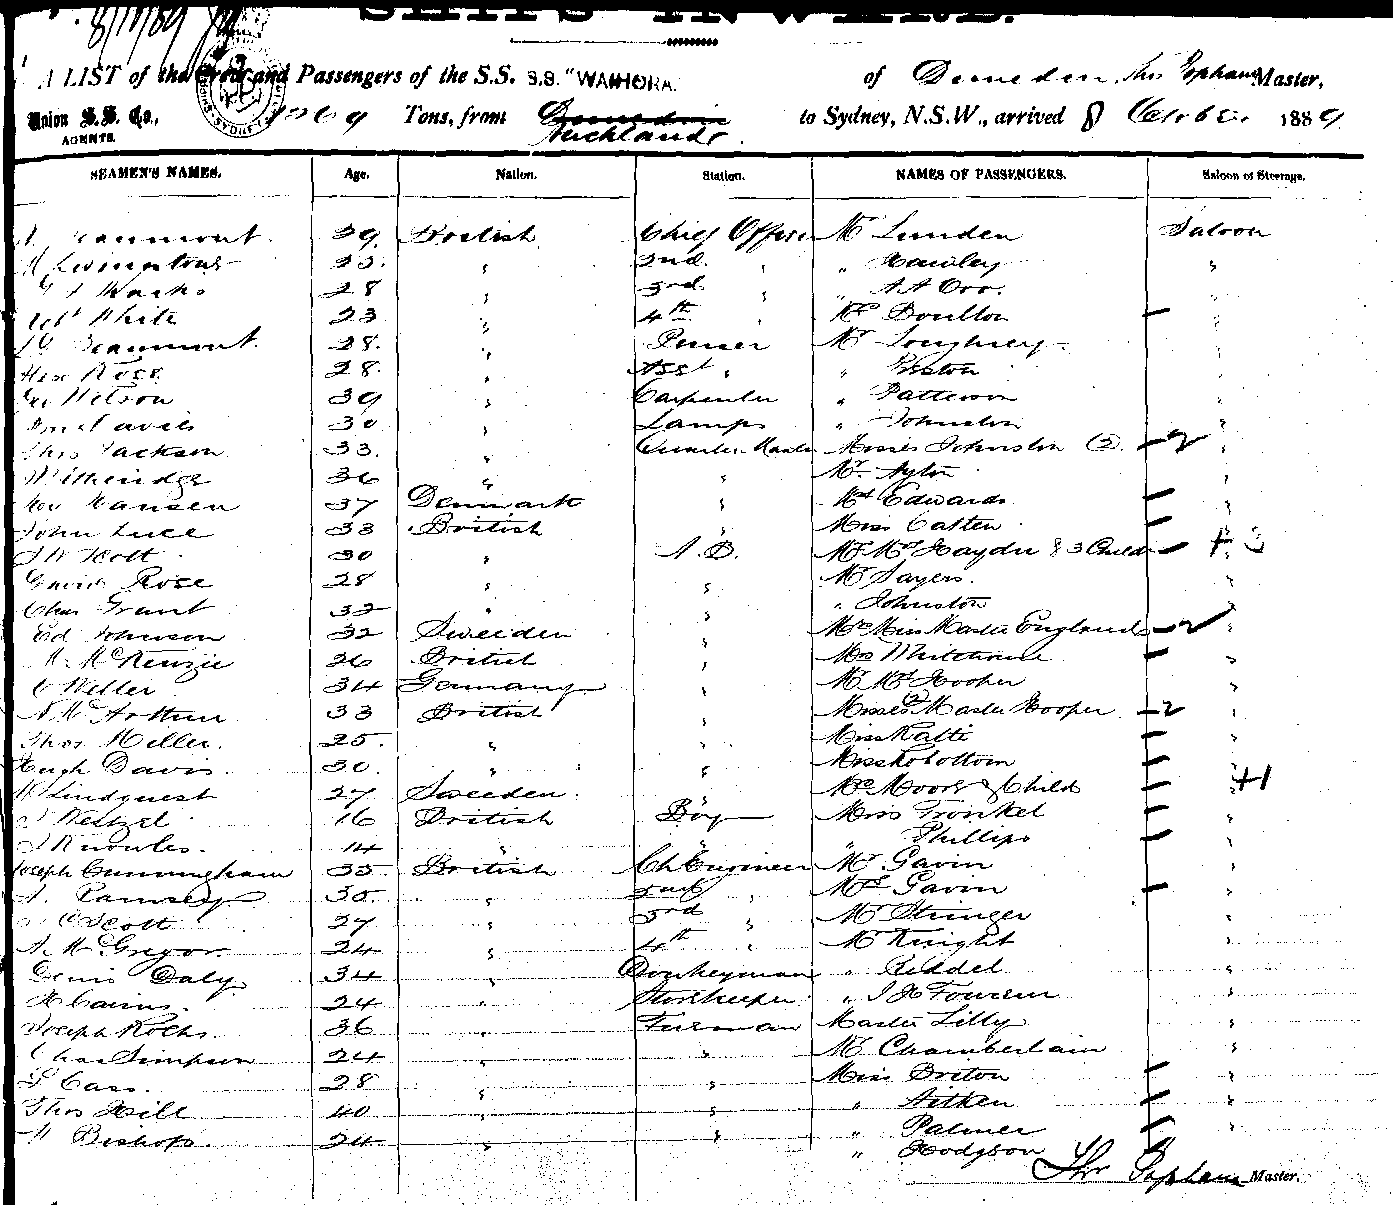 8/10/89
SHIPS INWARD.
A LIST of the Crew and Passengers of the S.S. S.S. "WAIHORA. of Dunedin, Thos Popham Master,
Union S.S. Co., AGENTS. 1269 Tons, from Dunedin Auckland. to Sydney, N.S.W., arrived 8 October 1889
SEAMEN'S NAMES. Age. Nation. Station. NAMES OF PASSENGERS. Saloon or Steerage.
Beaumont 39 British Chief Officer Mr Lunden Saloon
Livingstone 25. " 2nd. " " Hawley "
Marks 28 " 3rd. " " A A Orr. "
Robt White 23 " 4th " Mrs Boulton "
Beaumont. 28. " Purser Mr Loughrey "
Alex Rose 28. " Asst " " Preston "
Wilson 39 " Carpenter " Patterson "
Davis 30 " Lamps " Johnston "
Thos Jackson 33. " Quarter Master Misses Johnston (2) 2 "
Witheridge 36 " " Mr Ayton "
Hansen 37 Denmark " Mrs Edwards "
John Luce 33 British " Miss Catten "
Scott 30 " A.B. Mr Mrs Haydn & 3 Childn + 3
David Rose 28 " " Mr Sayers. "
Chas Grant 32 " " " Johnston "
Ed Johnson 32 Sweeden " Mrs Miss Master England 2 "
M McKenzie 26 British " Mrs Whitehouse "
Weller 34 Germany " Mr Mrs Hooper "
McArthur 33 British " Misses (2) Master Hooper 2 "
Thos Miller. 25. " " Miss Katte "
Hugh Davis 30. " " Miss Shobottom "
Lindquest 27 Sweeden. " Mrs Moore & Child +1
Wetzel 16 British Boy Miss Fronkel "
Knowles. 14 " " " Phillips "
Joseph Cunningham 35 British Ch Engineer Mr Gavin "
Ramsey 35. " 2nd " Mrs Gavin "
Scott 27 " 3rd " Mr Stringer "
McGregor 24 " 4th " Mr Knight "
Denis Daly 34 " Donkeyman " Riddel "
H Cairns. 24 " Storekeeper " "
Joseph Rochs 36 " Fireman Master Lilly "
Chas Simpson 24 " " Mr Chamberlain "
Cass. 28 " " Miss Briton "
Thos Hill 40 " " " Aitken "
Bishop. 24 " " " Palmer "
" Hodgson
Thos Popham Master.